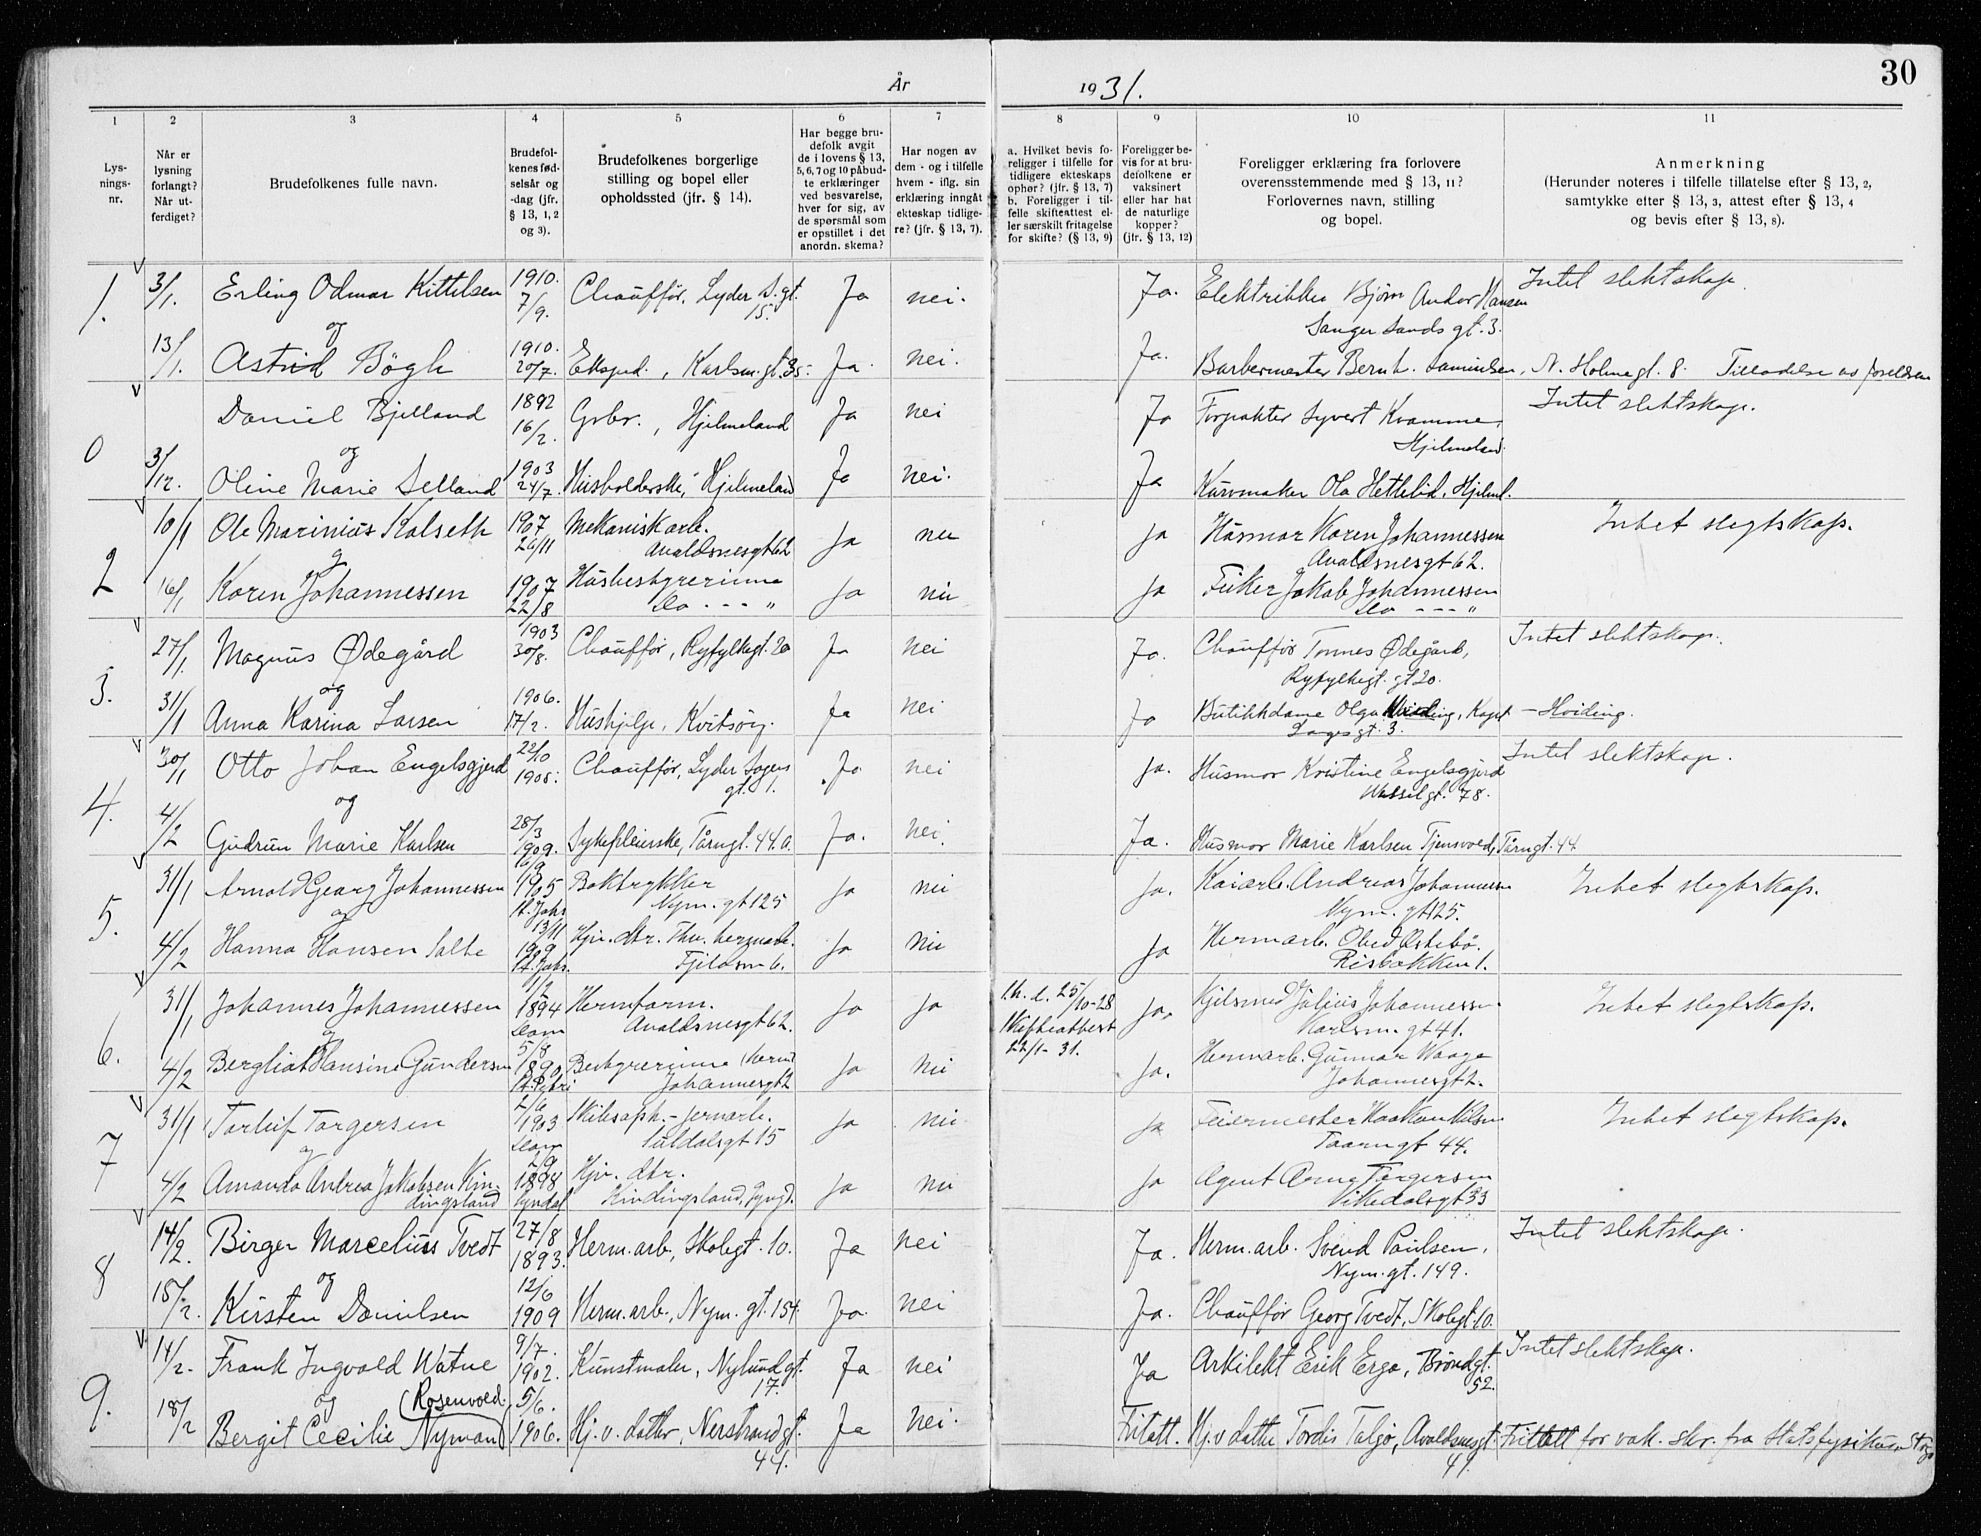 År 1931.
30
1 2 3 4 5 6 7 8 9 10 11
Lys-
nings-
nr.
Når er
lysning
forlangt?
Når ut-
ferdiget?
Brudefolkenes fulle navn.
Brudefol-
kenes fød-
selsår og
-dag (jfr.
§ 13, 1, 2
og 3).
Brudefolkenes borgerlige
stilling og bopel eller
opholdssted (jfr. § 14).
Har begge bru-
defolk avgit
de i lovens § 13,
5, 6, 7 og 10 påbud-
te erklæringer
ved besvarelse,
hver for sig, av
de spørsmål som
er opstillet i det
anordn. skema?
Har nogen av
dem - og i tilfelle
hvem - iflg. sin
erklæring inngåt
ekteskap tidlige-
re? (jfr. § 13, 7).
a. Hvilket bevis fo-
religger i tilfelle for
tidligere ekteskaps
ophør? (jfr. § 13, 7)
b. Foreligger i til-
felle skifteattest el-
ler særskilt fritagelse
for skifte? (§ 13, 9)
Foreligger be-
vis for at bru-
defolkene er
vaksinert
eller har hat
de naturlige
kopper?
(jfr. § 13, 12)
Foreligger erklæring fra forlovere
overensstemmende med § 13, 11?
Forlovernes navn, stilling
og bopel.
Anmerkning
(Herunder noteres i tilfelle tillatelse efter § 13, 2,
samtykke efter § 13, 3, attest efter § 13, 4
og bevis efter § 13, 8).
1. 3/1. Erling Odmar Kittelsen 1910. 7/9. Chauffør, Lyder S. gt. 15. Ja nei. Ja. Elektriker Bjørn Andor Hansen Intet slektskap.
Sanger Sands gt. 3.
og
13/1. Astrid Bögh 1910. 20/7. Eksped., Karlsm. gt. 35. Ja. nei. Ja. Barbermester Bernh. Samuelsen, N. Holmegt. 8. Tilladelse av foreldrene
0 Daniel Bjelland 1892 16/2. Grbr., Hjelmeland Ja nei Ja Forpakter Syvert Kvamme, Intet slektskap.
Hjelmeland.
og
3/12. Oline Marie Selland 1903 24/7. Husholderske, Hjelmeland Ja nei. Ja Kurvmaker Ola Hettelid, Hjelml.
2 10/1 Ole Marinius Kalseth 1907 26/11 Mekanisk arb. Ja nei ja Husmor Karen Johannessen Intet slegtskap.
Avaldsnesgt 62 Avaldsnesgt 62.
og
16/1 Karen Johannessen 1907 22/8 Husbestyrerinne Ja nei ja Fisker Jakob Johannessen
Do - - - " Do - - - "
3. 27/1. Magnus Ødegård 1903 30/8. Chauffør, Ryfylkegt. 20 Ja nei Ja. Chauffør Tønnes Ødegård, Intet slektskap.
Ryfylkegt. gt 20.
og
31/1 Anna Karina Larsen 1906. 17/2. Hushjelp, Kvitsøy. Ja nei Ja Butikkdame Olga Hviding, Kapt — Hviding.
Langes gt. 3.
4. 30/1 Otto Johan Engelsgjerd 22/10 1905. Chauffør, Lyder Sagens gt. 1. Ja nei Ja. Husmor Kristine Engelsgjerd Intet slektskap.
Wesselgt. 78.
og
4/2 Gudrun Marie Karlsen 28/3 1909. Sykepleierske, Tårngt. 44.a. Ja. nei. Ja. Husmor Marie Karlsen Tjensvold, Tårngt. 44
5. 31/1 Arnold Georg Johannessen 6/9 1905 St. Johs Boktrykker Ja nei Ja. Kaiarb. Andreas Johannessen Intet slegtskap.
Nym. gt 125 Nym. gt 125.
og
4/2 Hanna Hansen Salte 13/11 1909 St. Johs. Hjv. dtr. Thv. hermarb. Ja nei Ja Hermarb. Obed Østebø.
Fjeldsm 6. Risbakken 1.
6. 31/1 Johannes Johannessen 11/2 1894 Dom Hermform. Ja ja 1. h. d. 25/10-28 Ja. Kjelsmed Julius Johannessen. Intet slegtskap.
Avaldsnesgt 62. Skifteattest Karlsm. gt 41.
og 22/1-31.
4/2 Bergliot Hansine Gundersen 5/8 1890 St. Petri Bestyrerinne herm Ja nei Ja. Hermarb. Gunnar Waage
Johannesgt 2 Johannesgt 2.
7 31/1 Torleif Torgersen 2/6 1903 Dom Skibsoph.-jernarb. Ja nei. ja Feiermester Haakon Nilsen Intet slegtskap.
Suldalsgt 15 Taarngt 44.
og
4/2 Amanda Andrea Jakobsen Kin- 2/9 1898 Lyngdal Hjv. dtr. Ja nei Ja Agent Arne Torgersen
dingsland Kindingsland, Lyngd. Vikedalsgt 33
8 14/2. Birger Marcelius Tvedt 27/8 1893. Herm.arb, Skolegt. 10. Ja nei Ja. Herm.arb. Svend Paulsen, Intet slektskap.
Nym.gt. 149.
og
18/2. Kirsten Danielsen 12/6 1909 Herm.arb., Nym. gt. 154 Ja. nei Ja. Chauffør Georg Tvedt, Skolegt. 10.
9. 14/2. Frank Ingvald Watne 9/7. 1902. Kunstmaler, Nylundgt. 17. Ja nei Ja Arkitekt Erik Ergo, Brøndgt. 52. Intet slektskap.
og (Rosenvold)
18/2 Bergit Cecilie Nyman 5/6. 1906. Hj. v. datter, Nerstrandgt. 44. Ja nei. Fritatt. Hj. v datter Tordis Talgø, Avaldsnesgt. 41. Fritatt for vak. skr. fra Statsfysikus